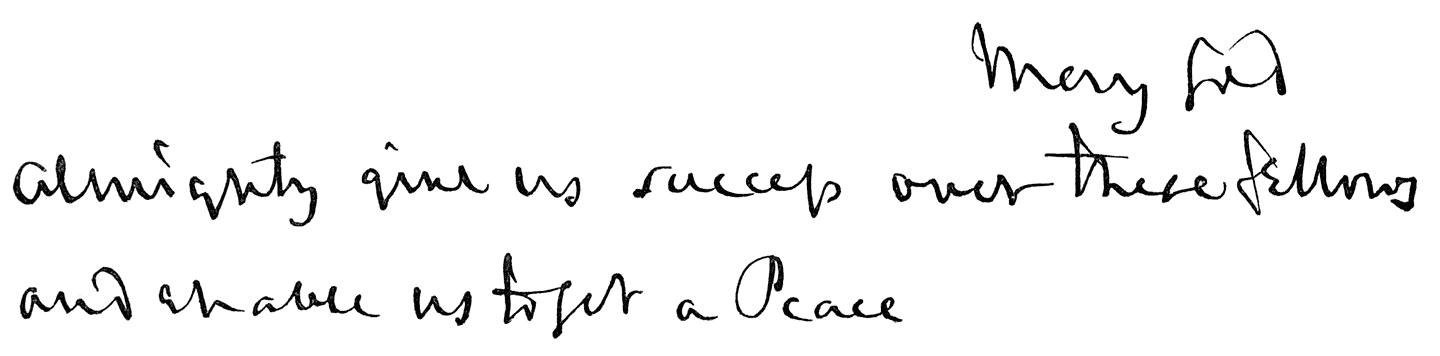 May God
almighty give us success over these fellows
and enable us to get a Peace